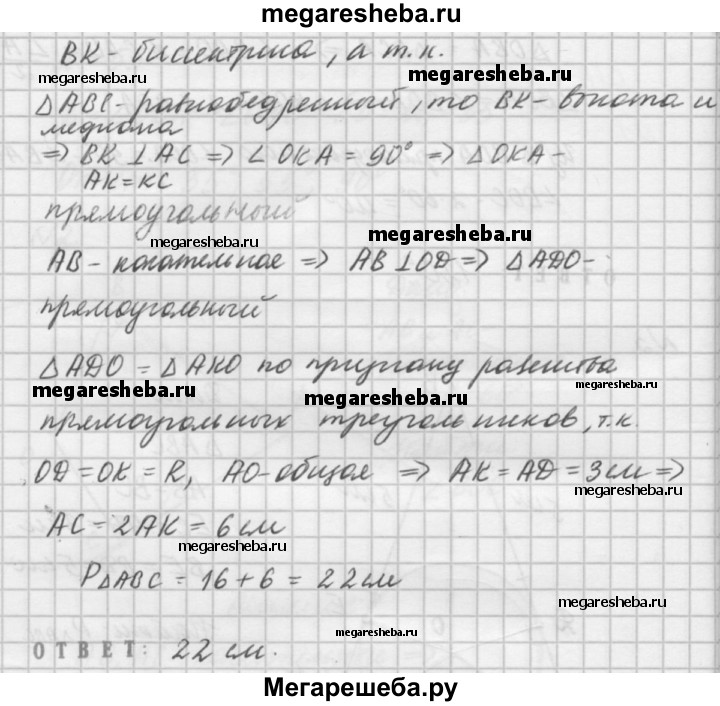 megaresheba.ru
BK - биссектриса, а т.к.
megaresheba.ru megaresheba.ru
△ABC - равнобедренный, то BK - высота и
медиана
⇒ BK ⊥ AC ⇒ ∠OKA = 90° ⇒ △OKA -
AK = KC
прямоугольный
megaresheba.ru megaresheba.ru
AB - касательное ⇒ AB ⊥ OD ⇒ △ADO -
прямоугольный
△ADO = △AKO по признаку равенства
megaresheba.ru megaresheba.ru megaresheba.ru
прямоугольных треугольников, т.к.
OD = OK = R, AO - общая ⇒ AK = AD = 3 см ⇒
megaresheba.ru
AC = 2AK = 6 см
megaresheba.ru
P△ABC = 16 + 6 = 22 см
megaresheba.ru
ОТВЕТ: 22 см.
Мегарешеба.ру